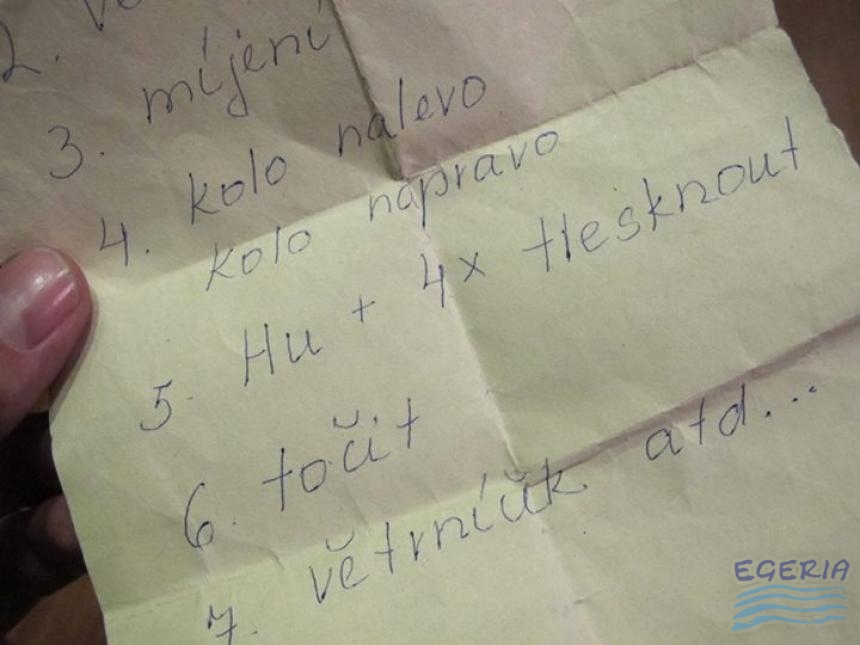 2. ve
3. míjení
4. kolo nalevo
kolo napravo
5. Hu + 4x tlesknout
6. točit
7. větrníčk atd...
EGERIA